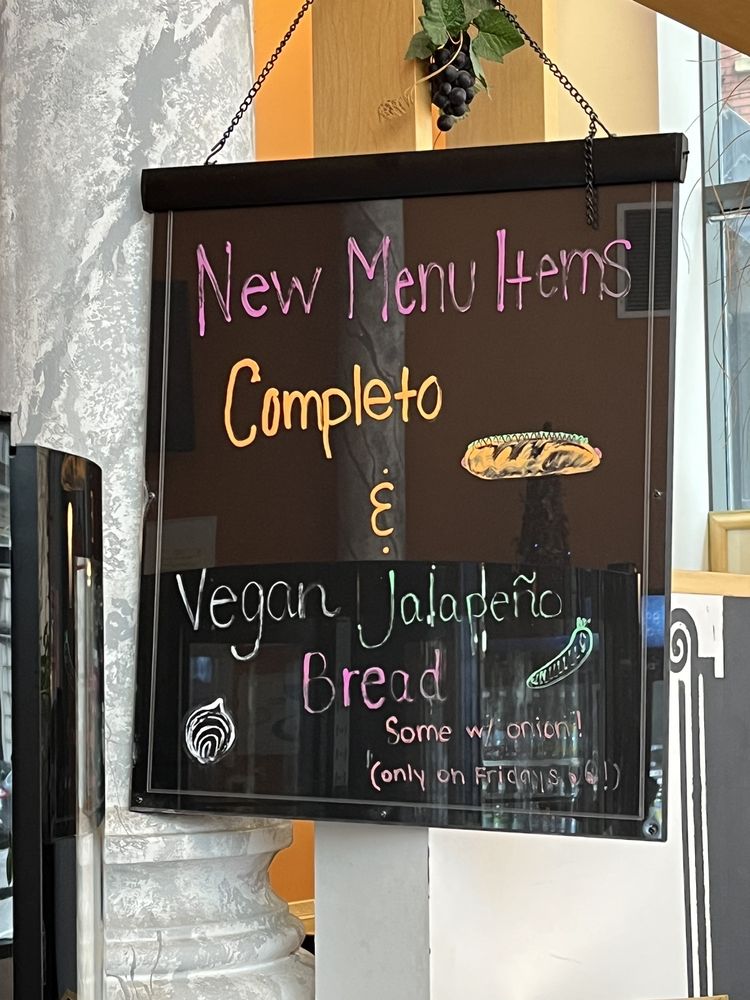 New Menu Items
Completo
&
Vegan Jalapeño
Bread
Some w/ onion!
(only on Fridays !)